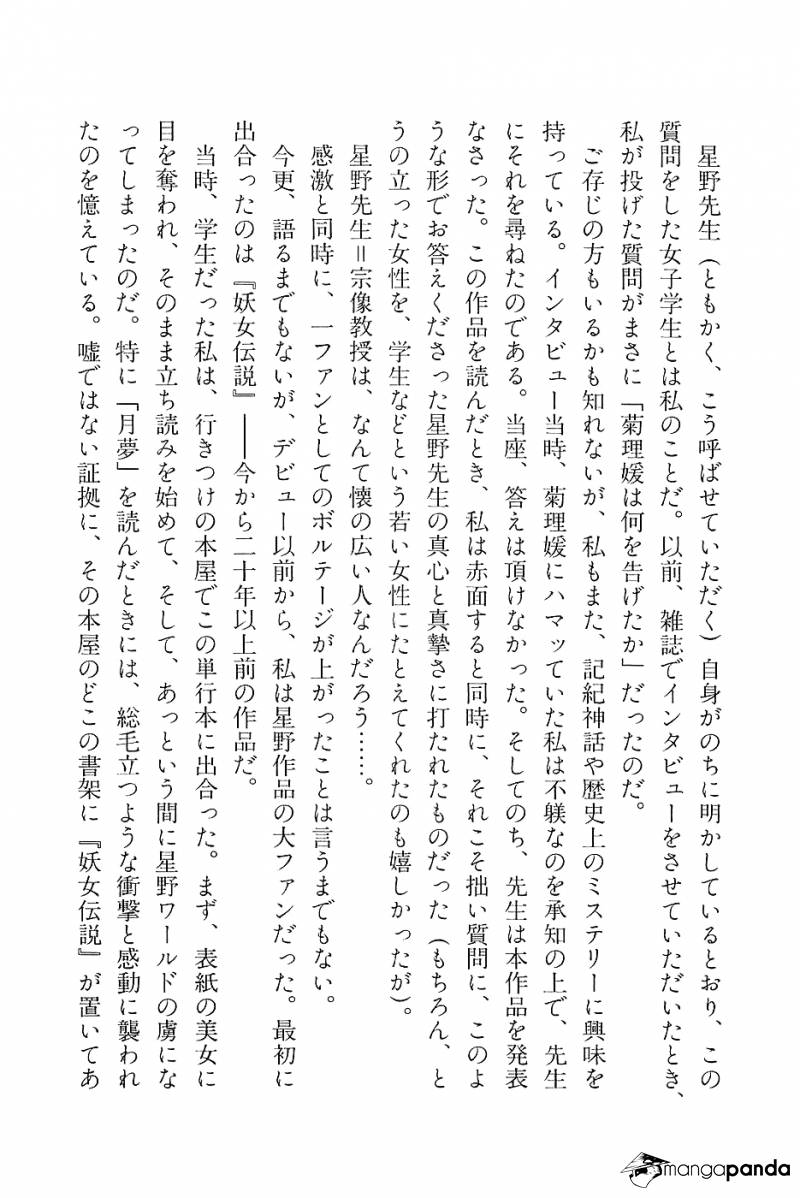 星野先生（ともかく、こう呼ばせていただく）自身がのちに明かしているとおり、この
質問をした女子学生とは私のことだ。以前、雑誌でインタビューをさせていただいたとき、
私が投げた質問がまさに「菊理媛は何を告げたか」だったのだ。
ご存じの方もいるかも知れないが、私もまた、記紀神話や歴史上のミステリーに興味を
持っている。インタビュー当時、菊理媛にハマッていた私は不躾なのを承知の上で、先生
にそれを尋ねたのである。当座、答えは頂けなかった。そしてのち、先生は本作品を発表
なさった。この作品を読んだとき、私は赤面すると同時に、それこそ拙い質問に、このよ
うな形でお答えくださった星野先生の真心と真摯さに打たれたものだった（もちろん、と
うの立った女性を、学生などという若い女性にたとえてくれたのも嬉しかったが）。
星野先生＝宗像教授は、なんて懐の広い人なんだろう……。
感激と同時に、一ファンとしてのボルテージが上がったことは言うまでもない。
今更、語るまでもないが、デビュー以前から、私は星野作品の大ファンだった。最初に
出合ったのは『妖女伝説』――今から二十年以上前の作品だ。
当時、学生だった私は、行きつけの本屋でこの単行本に出合った。まず、表紙の美女に
目を奪われ、そのまま立ち読みを始めて、そして、あっという間に星野ワールドの虜にな
ってしまったのだ。特に「月夢」を読んだときには、総毛立つような衝撃と感動に襲われ
たのを憶えている。嘘ではない証拠に、その本屋のどこの書架に『妖女伝説』が置いてあ
mangapanda